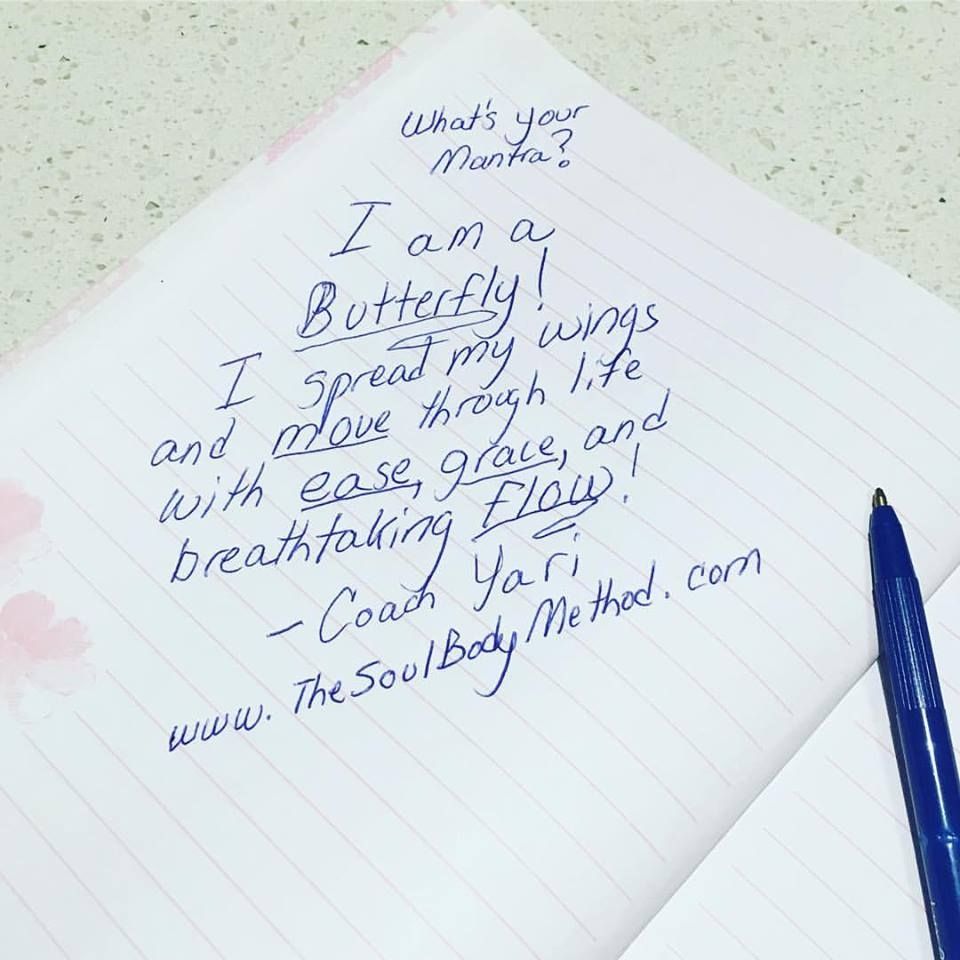 What's your
Mantra?
I am a
Butterfly!
I spread my wings
and move through life
with ease, grace, and
breathtaking flow!
- Coach Yari
www.TheSoulBodyMethod.com